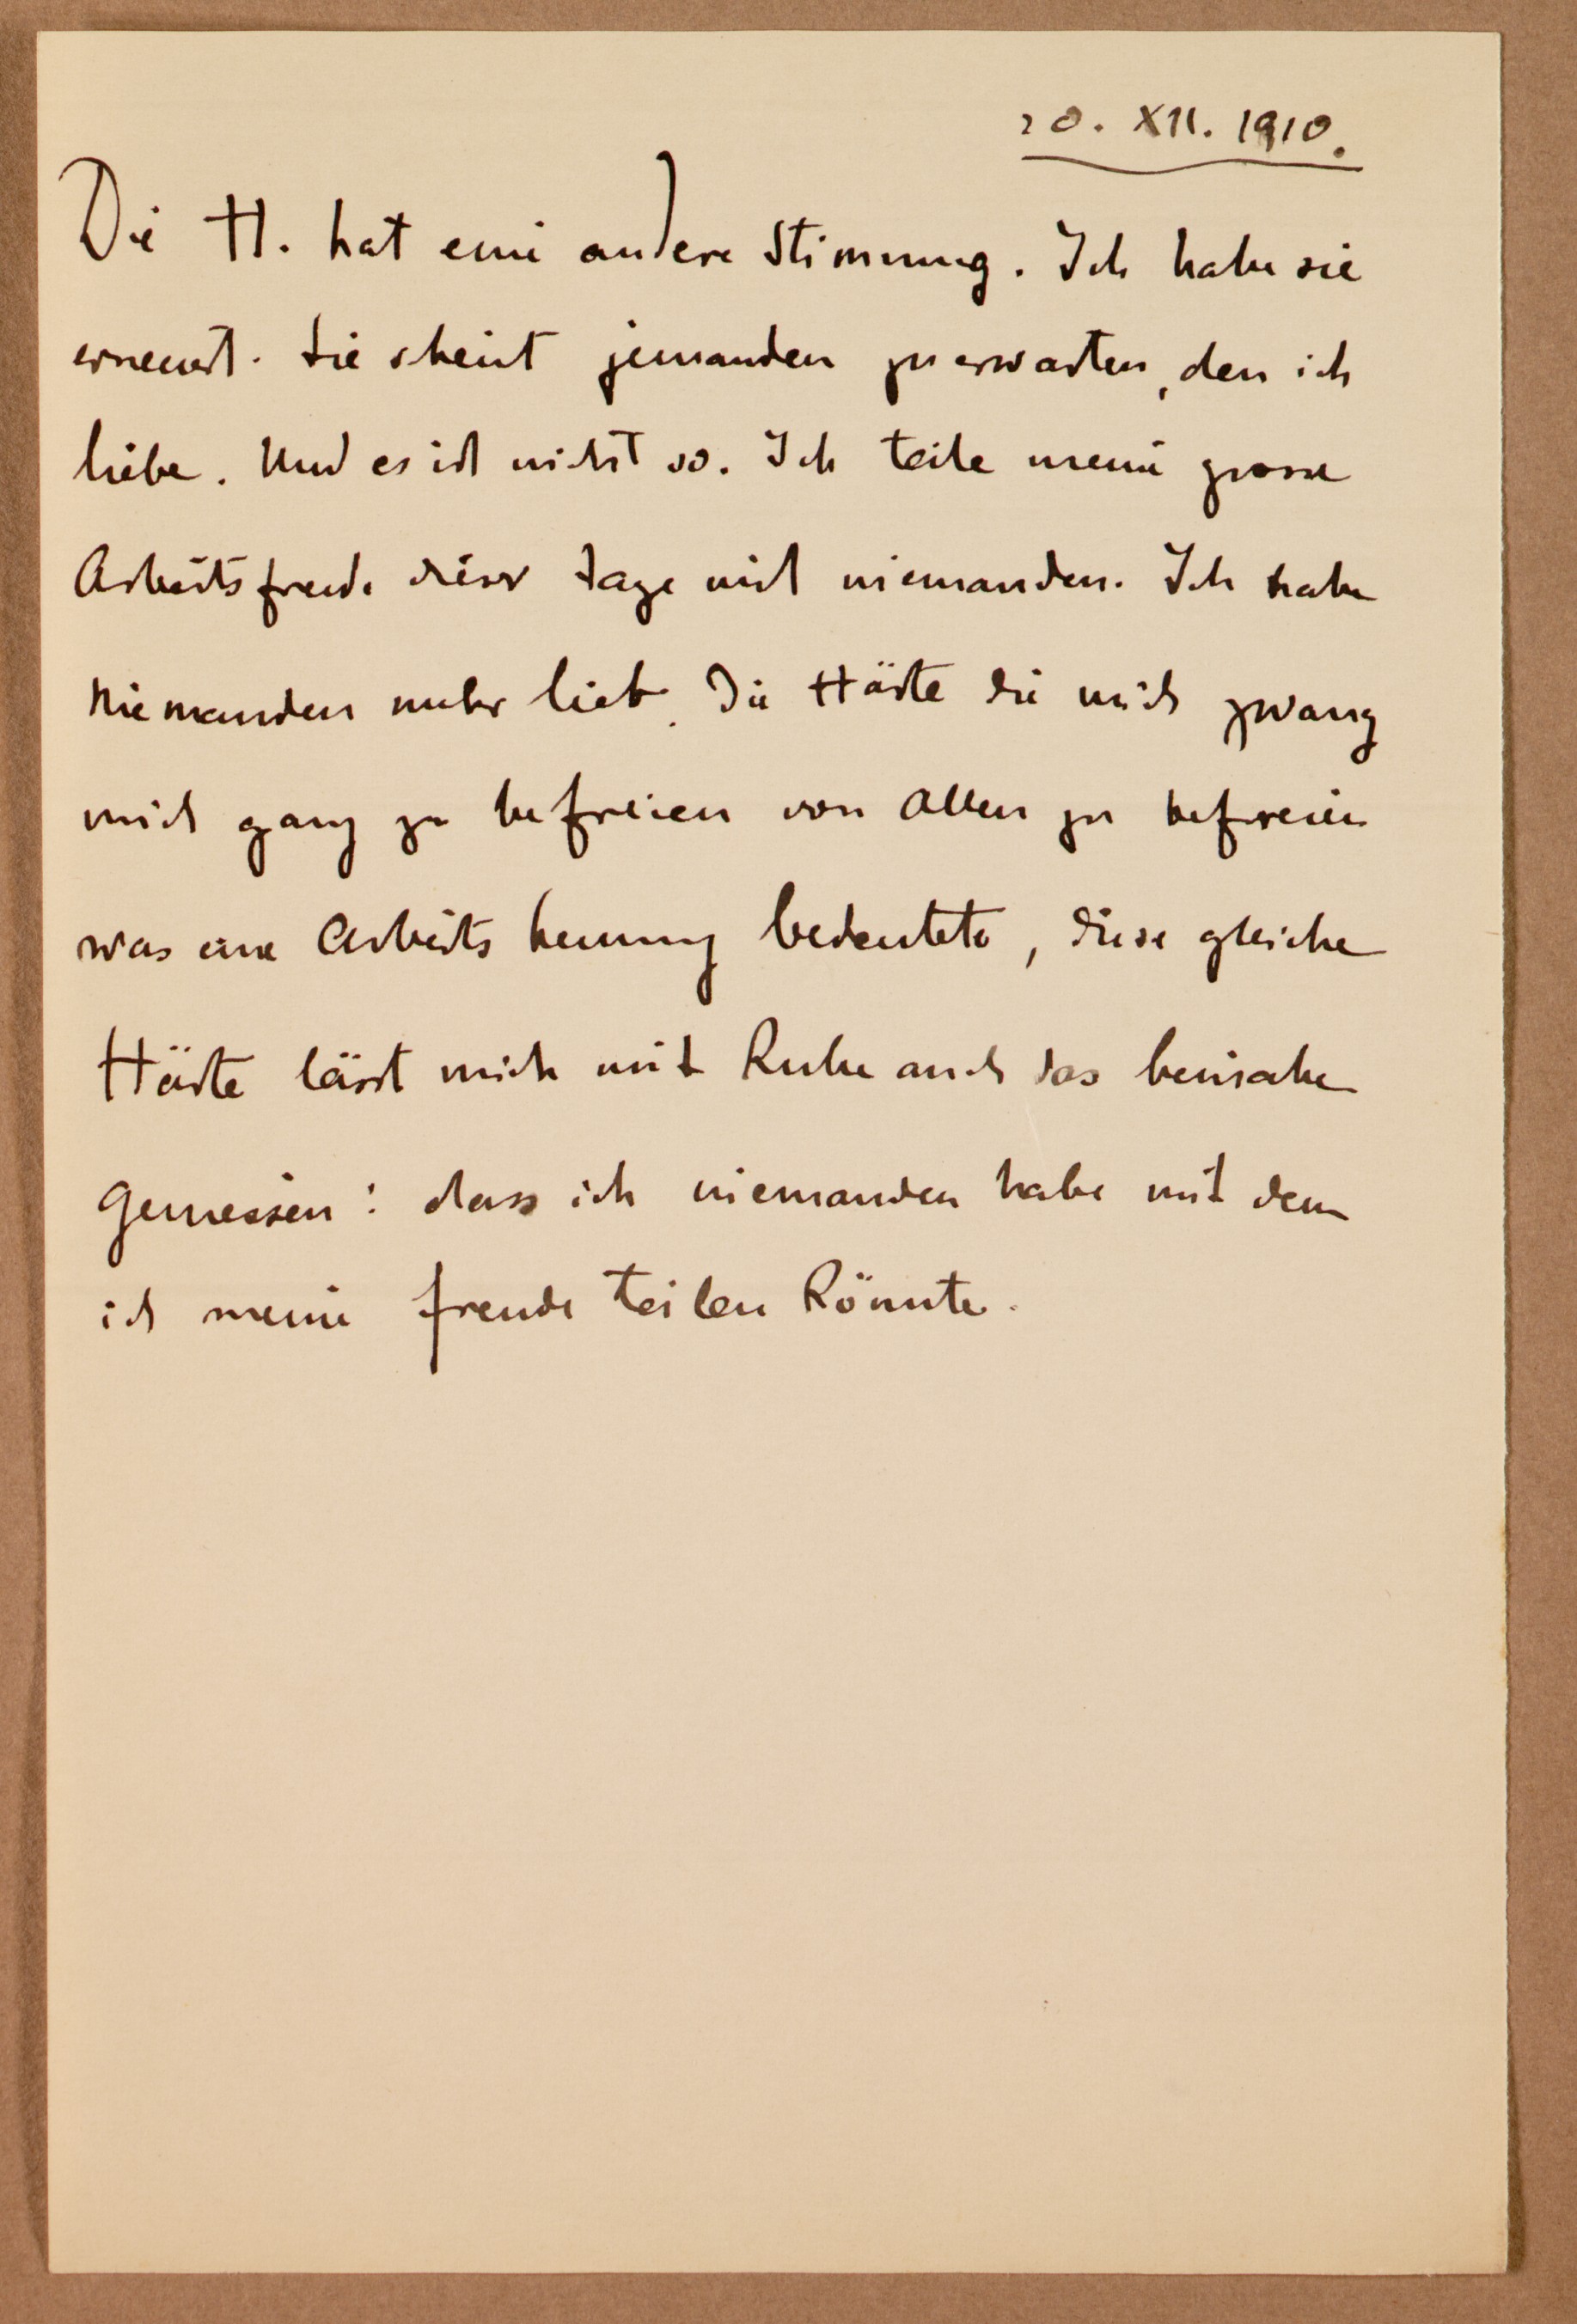 20. XII. 1910.
Die H. hat eine andere Stimmung. Ich habe sie
erneuert. Sie scheint jemanden zu erwarten, den ich
liebe. Und es ist nicht so. Ich teile meine grosse
Arbeitsfreude dieser Tage mit niemanden. Ich habe
niemanden mehr lieb. Die Härte die mich zwang
mich ganz zu befreien von Allem zu befreien
was eine Arbeits hemmung bedeutete, diese gleiche
Härte lässt mich mit Ruhe auch das beinahe
geniessen: dass ich niemanden habe mit dem
ich meine freude teilen könnte.